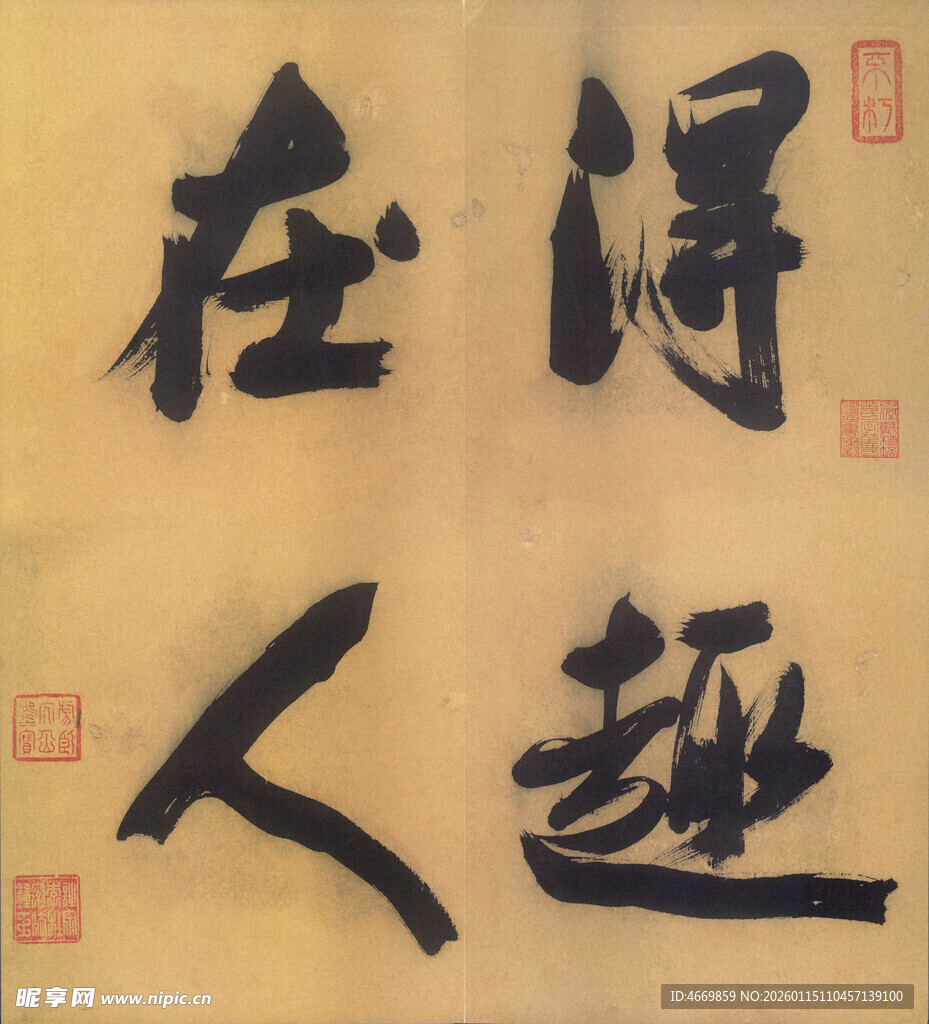 得趣
在人
不朽
昵享网 www.nipic.cn
ID:4669859 NO:20260115110457139100